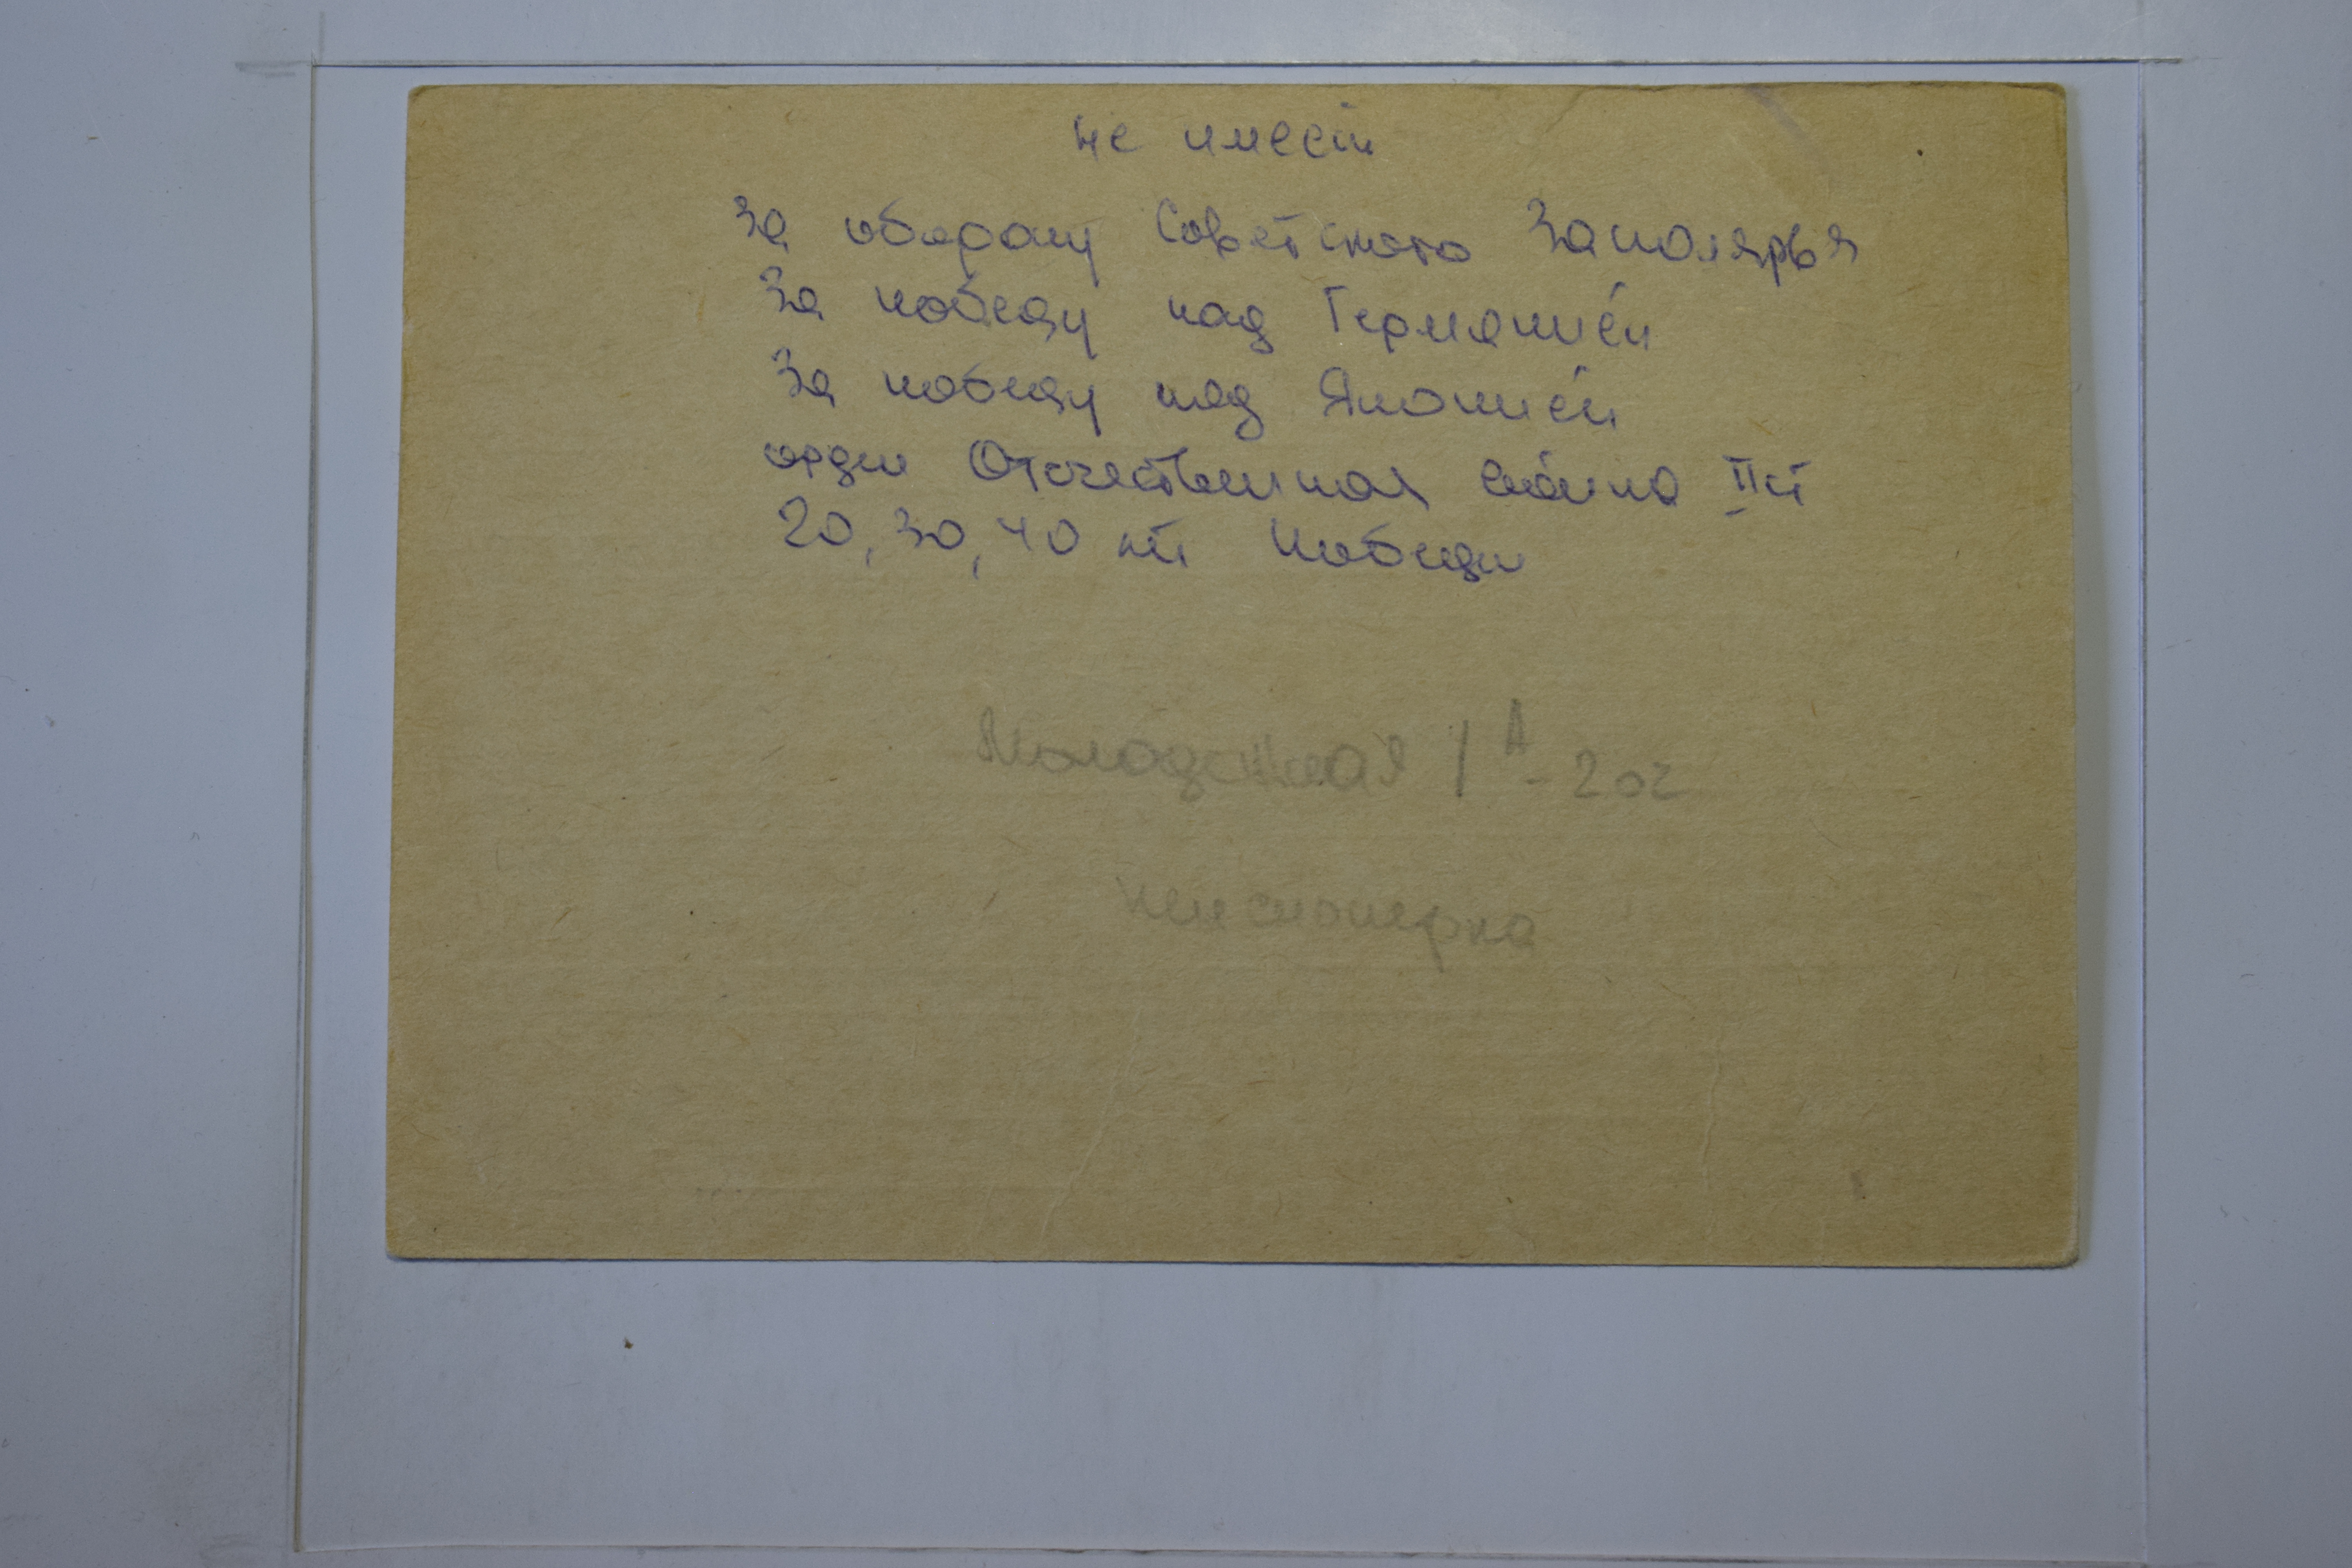 не имеет
За оборону Советского Заполярья
За победу над Германией
За победу над Японией
орден Отечественная война II ст
20, 30, 40 лет Победы
Молодежная 1А - 202
пенсионерка